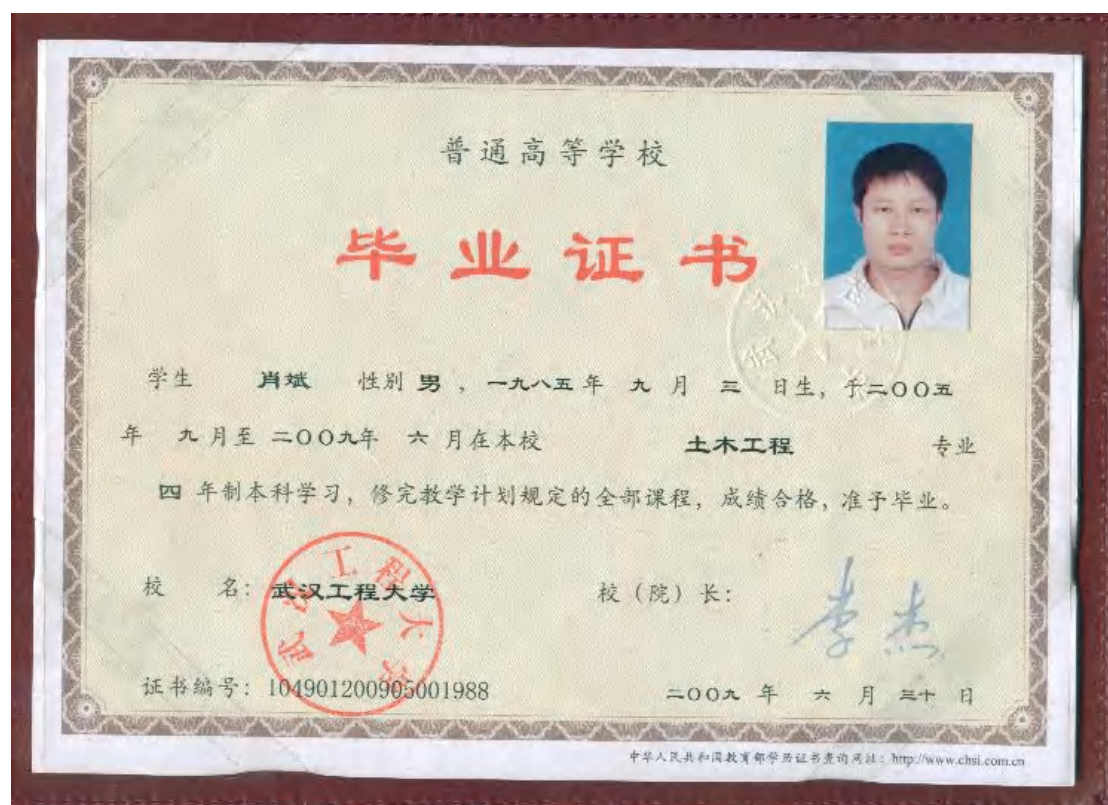 普通高等学校
毕业证书
学生 肖斌 性别 男 ，一九八五 年 九 月 三 日生，于二〇〇五
年 九 月至 二〇〇九年 六 月在本校 土木工程 专业
四 年制本科学习，修完教学计划规定的全部课程，成绩合格，准予毕业。
校 名：武汉工程大学 校（院）长：李杰
武汉工程大学
证书编号：104901200905001988 二〇〇九 年 六 月 三十 日
中华人民共和国教育部学历证书查询网址：http://www.chsi.com.cn